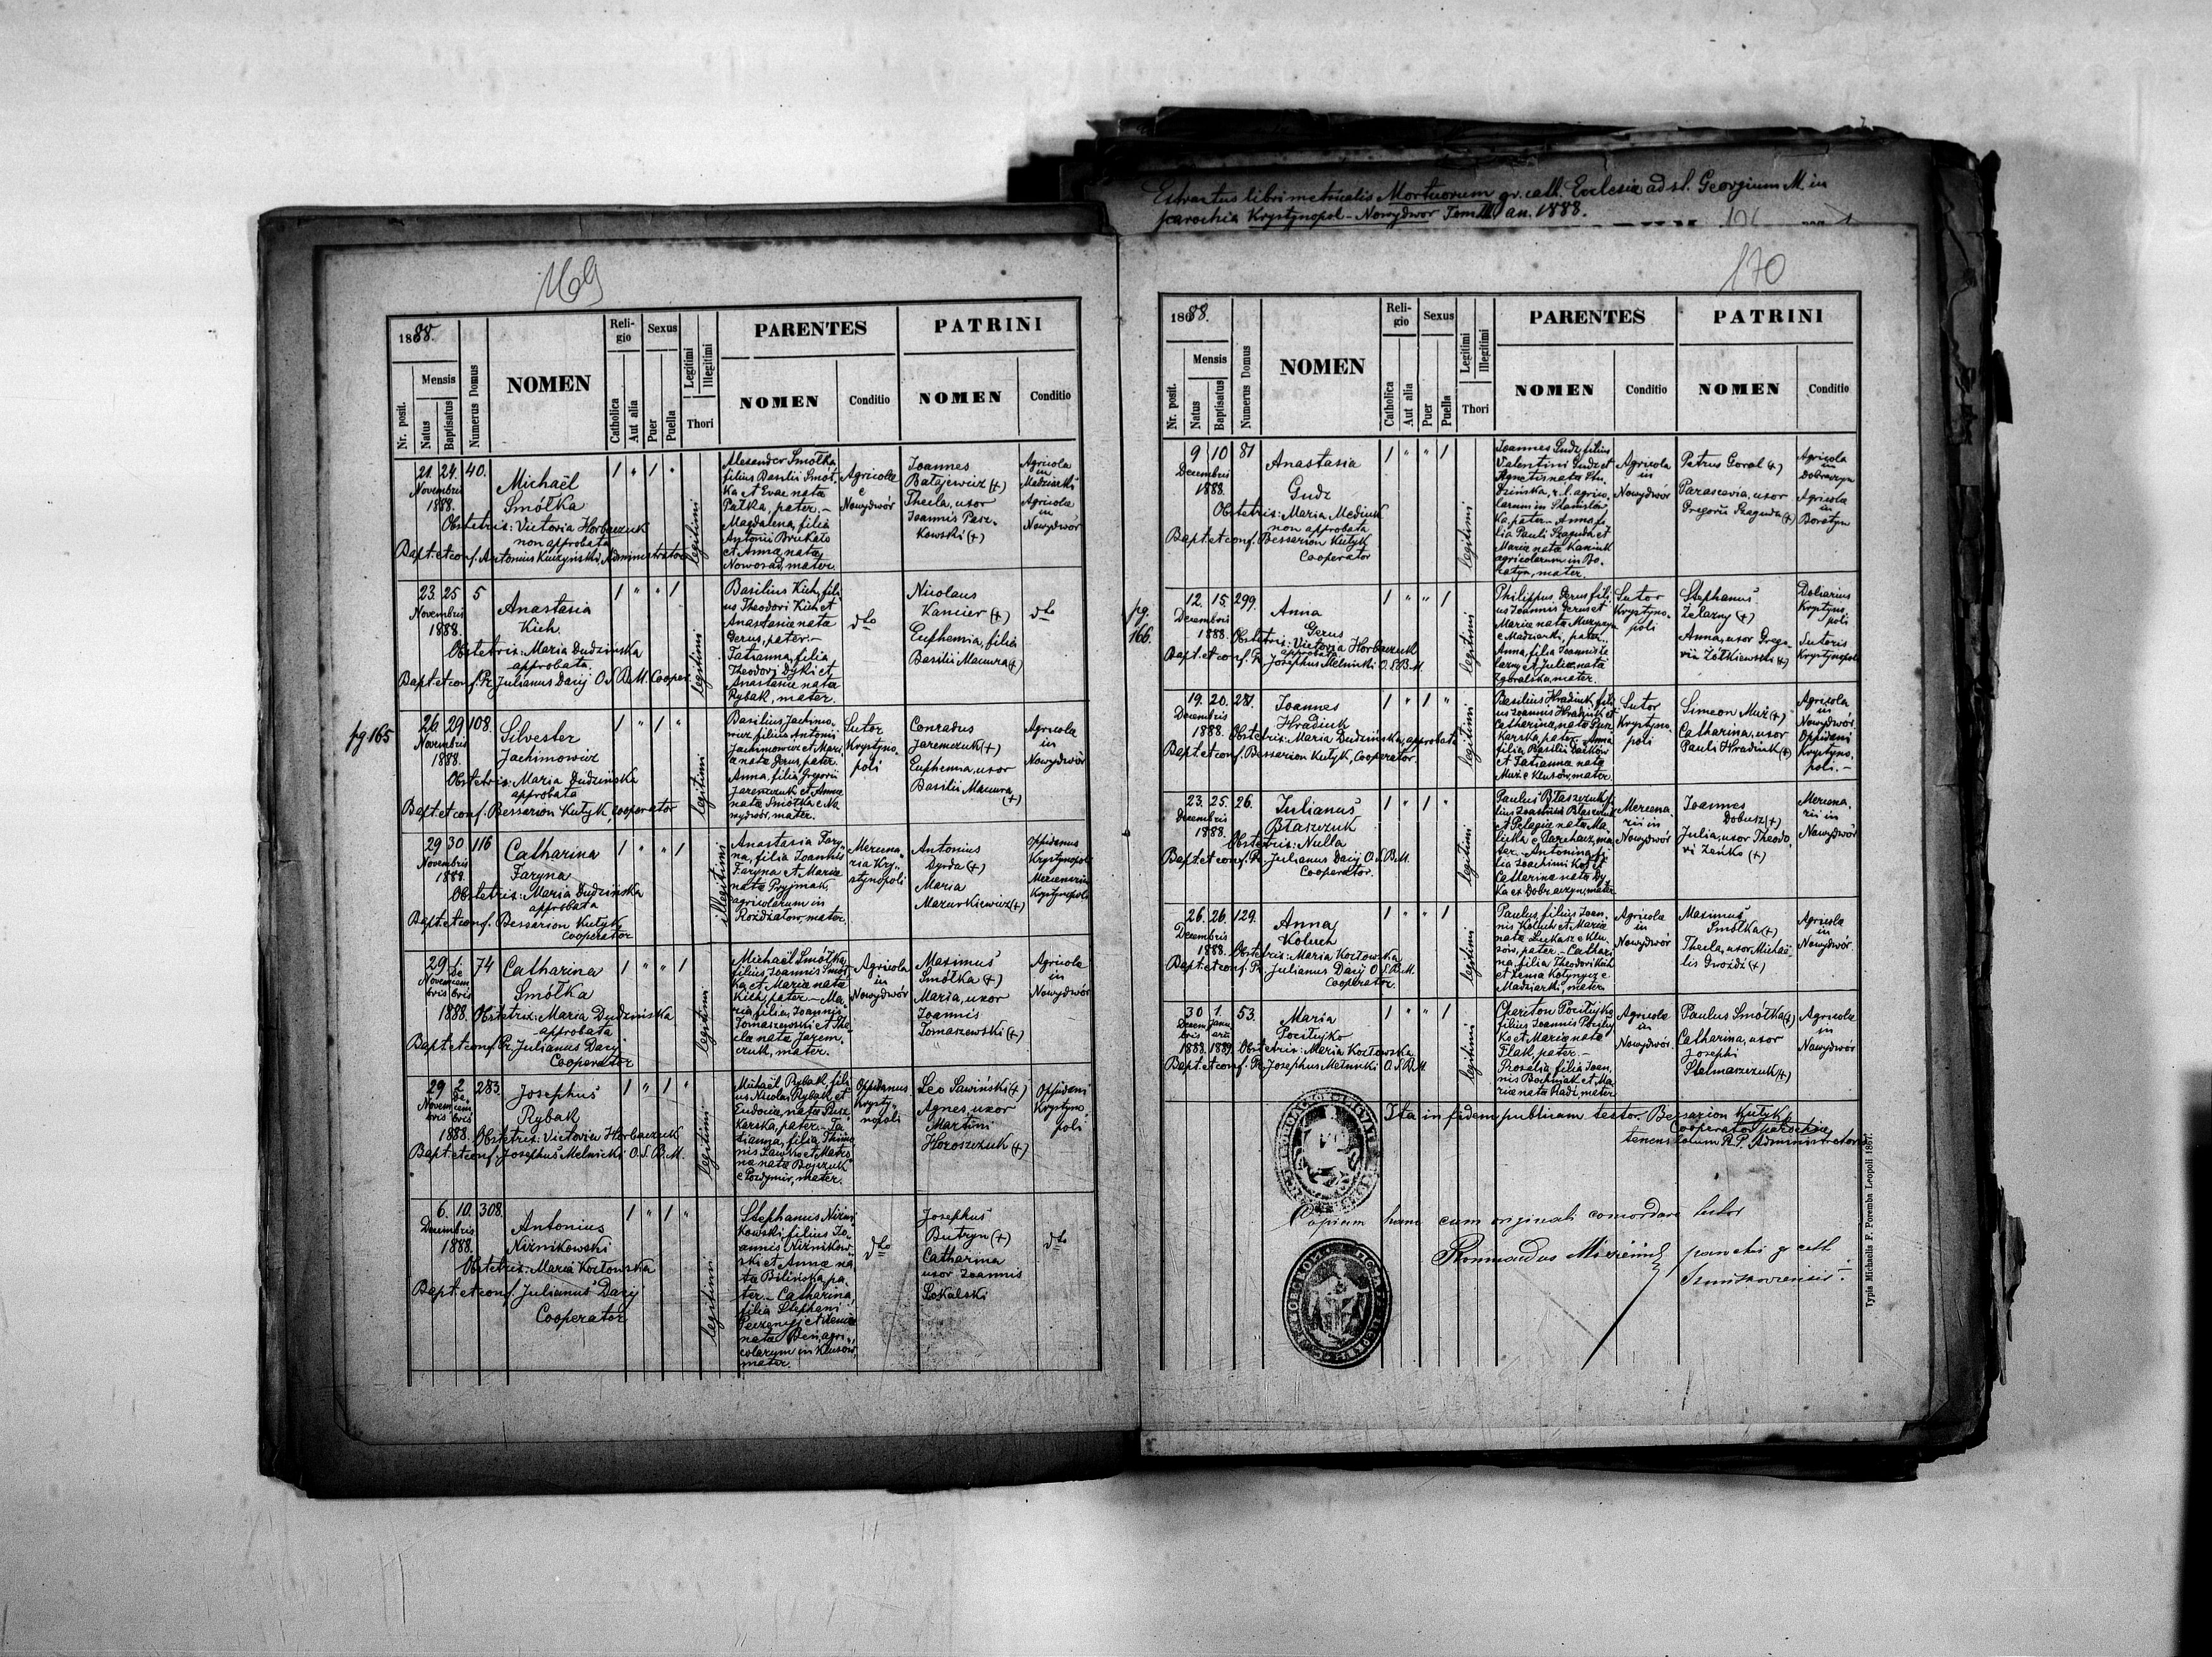 Extractus libri metricalis Mortuorum gr. cath. Ecclesiæ ad st. Georgium M. in
parochia Krystynopol-Nowydwor Tom III an. 1888.
169
1888.
Mensis
Nr. posit.
Natus
Baptisatus
Numerus Domus
NOMEN
Reli-
gio
Catholica
Aut alia
Sexus
Puer
Puella
Legitimi
Illegitimi
Thori
PARENTES
NOMEN
Conditio
PATRINI
NOMEN
Conditio
21. 24. 40.
Novembris
1888.
Michaël
Smółka
Obstetrix: Victoria Horbaczuk
non approbata
Bapt. et conf. Antonius Kuczyński, Administrator
1 " 1 "
legitimi
Alexander Smółka
filius Basilii Smół-
ka et Evae nata
Pałka, pater.-
Magdalena, filia
Antonii Brukało
et Anna nata
Nowosad, mater.
Agricola
e
Nowydwór
Joannes
Batajewicz (+)
Thecla, uxor
Joannis Pasz-
kowski (+)
Agricola
in
Madziarki
Agricola
in
Nowydwór
23. 25 5
Novembris
1888.
Anastasia
Kich
Obstetrix: Maria Dudzińska
approbata.
Bapt. et conf. Pr. Julianus Dacij O.S.B.M. Cooper.
1 " " 1
legitimi
Basilius Kich, fili-
us Theodori Kich et
Anastasiæ nata
Gerus, pater.-
Tatianna, filia
Theodori Dyki et
Anastasiæ nata
Rybak, mater.
dto
Nicolaus
Kancier (+)
Euphemia, filia
Basilii Macura (+)
dto
pg 165
26. 29. 108.
Novembris
1888.
Silvester
Jachimowicz
Obstetrix: Maria Dudzińska
approbata
Bapt. et conf. Bessarion Kutyk, cooperator
1 " 1 "
legitimi
Basilius Jachimo-
wicz filius Antonii
Jachimowicz et Mari-
æ nata Gerus, pater.
Anna, filia Gregorii
Jaremczuk et Annæ
nata Smółka e No-
wydwór, mater.
Sutor
Krystyno-
poli
Conradus
Jaremczuk (+)
Euphemia, uxor
Basilii Macura
(+)
Agricola
in
Nowydwór
29 30 116
Novembris
1888.
Catharina
Faryna
Obstetrix: Maria Dudzińska
approbata
Bapt. et conf. Bessarion Kutyk
cooperator
1 " " 1
illegitimi
Anastasia Fary-
na, filia Joannis
Faryna et Mariæ
nata Pryjmak,
agricolarum in
Rożdżałow, mater.
Mercena-
ria Kry-
stynopoli
Antonius
Dyrda (+)
Maria
Mazurkiewicz (+)
Oppidanus
Krystynopoli
Mercenaria
Krystynopoli
29 1. 74
Novem-
bris De-
cem-
bris
1888.
Catharina
Smółka
Obstetrix: Maria Dudzińska
approbata
Bapt. et conf. Pr. Julianus Dacij
Cooperator
1 " " 1
legitimi
Michaël Smółka,
filius Joannis Smół-
ka et Mariæ nata
Kich, pater.- Ma-
ria, filia Joannis
Tomaszewski et The-
clæ nata Jarem-
czuk, mater.
Agricola
in
Nowydwór
Maximus
Smółka (+)
Maria, uxor
Joannis
Tomaszewski (+)
Agricola
in
Nowydwór
29 2 283.
Novem-
bris De-
cem-
bris
1888.
Josephus
Rybak
Obstetrix: Victoria Horbaczuk
Bapt. et conf. Josephus Melnicki O.S.B.M.
1 " 1 "
legitimi
Michaël Rybak, fili-
us Nicolai Rybak et
Eudociæ nata Pusz-
karska, pater.- Ta-
tianna, filia Thimo-
nis Sawko et Matro-
næ nata Bojczuk
e Pozdymir, mater.
Oppidanus
Krysty-
nopoli
Leo Sawiński (+)
Agnes uxor
Martini
Horoszczuk (+)
Oppidani
Krystyno-
poli
6. 10. 308.
Decembris
1888.
Antonius
Niżnikowski
Obstetrix: Maria Kozłowska
Bapt. et conf. Julianus Dacij
Cooperator
1 " 1 "
legitimi
Stephanus Niżni-
kowski filius Jo-
annis Niżnikow-
ski et Annæ na-
ta Bilińska, pa-
ter.- Catharina,
filia Stephani
et Xeniæ
nata agri-
colarum in Klusów,
mater.
dto
Josephus
Butryn (+)
Catharina
uxor Joannis
Sokalski
dto
170
1888.
Mensis
Nr. posit.
Natus
Baptisatus
Numerus Domus
NOMEN
Reli-
gio
Catholica
Aut alia
Sexus
Puer
Puella
Legitimi
Illegitimi
Thori
PARENTES
NOMEN
Conditio
PATRINI
NOMEN
Conditio
9 10 81
Decembris
1888.
Anastasia
Gudz
Obstetrix: Maria Mediuk
non approbata
Bapt. et conf. Bessarion Kutyk
Cooperator
1 " " 1
legitimi
Joannes Gudz, filius
Valentini Gudz et
Agnetis nata Stu-
dzińska, r. l. agrico-
larum in Stanisłów-
ka, pater.- Anna fi-
lia Pauli Szaguda et
Mariæ nata Kaziuk
agricolarum in Bo-
ratyn, mater.
Agricola
in
Nowydwór
Petrus Goral (+)
Parascevia, uxor
Gregorii Szaguda (+)
Agricola
in
Dobraczyn
Agricola
in
Boratyn
pg
166.
12. 15. 299.
Decembris
1888.
Anna
Gerus
Obstetrix: Victoria Horbaczuk
approbata
Bapt. et conf. Pr. Josephus Melnicki O.S.B.M.
1 " " 1
legitimi
Philippus Gerus fili-
us Joannis Gerus et
Mariæ nata Murzyn
e Madziarki, pater.-
Anna, filia Joannis Że-
lazny et Juliæ nata
Zgoralska, mater.
Sutor
Krystyno-
poli
Stephanus
Żelazny (+)
Anna, uxor Grego-
rii Żółkiewski (+)
Doliarius
Krystyno-
poli
Sutoris
Krystynopoli
19. 20. 281.
Decembris
1888.
Joannes
Hradiuk
Obstetrix: Maria Dudzińska, approbata
Bapt. et conf. Bessarion Kutyk, Cooperator.
1 " 1 "
legitimi
Basilius Hradiuk, fili-
us Joannis Hradiuk et
Catharinæ nata Pusz-
karska, pater.- Anna
filia Basilii Daćków
et Tatianna nata
Muż e Klusów, mater.
Sutor
Krystyno-
poli
Simeon Muż (+)
Catharina, uxor
Pauli Hradiuk (+)
Agricola
in
Nowydwór
Oppidani
Krystyno-
poli.-
23. 25. 26.
Decembris
1888.
Julianus
Błaszczuk
Obstetrix: Nulla
Bapt. et conf. Pr. Julianus Dacij O.S.B.M.
Cooperator.
1 " 1 "
legitimi
Paulus Błaszczuk fi-
lius Joannis Błaszczuk
et Pelagiæ nata Ma-
licka e Parchacz, pa-
ter. Antonina, fi-
lia Joachimi Kos et
Catharinæ nata Dy-
ka ex Dobraczyn, mater
Mercena-
rii in
Nowydwór
Joannes
Dobusz (+)
Julia, uxor Theodo-
ri Zańko (+)
Mercena-
rii in
Nowydwór
26. 26. 129.
Decembris
1888.
Anna
Koluch
Obstetrix: Maria Kozłowska
Bapt. et conf. Pr. Julianus Dacij O.S.B.M.
Cooperator.
1 " " 1
legitimi
Paulus, filius Joan-
nis Koluch et Mariæ
nata Łukasz e Klu-
sów, pater.- Cathari-
na, filia Theodori Kich
et Xeniæ Kotynycz e
Madziarki, mater.
Agricola
in
Nowydwór
Maximus
Smółka (+)
Thecla, uxor Michaë-
lis Gwoźdź (+)
Agricola
in
Nowydwór.
30 1. 53.
Decem-
bris Janu-
arii
1888. 1889.
Maria
Pocitujko
Obstetrix: Maria Kozłowska
Bapt. et conf. Pr. Josephus Melnicki O.S.B.M.
1 " " 1
legitimi
Chariton Pocitujko
filius Joannis Pocituj-
ko et Mariæ nata
Flak, pater.-
Rosalia, filia Joan-
nis Bochniak et Ma-
riæ nata Radź, mater
Agricola
in
Nowydwór.
Paulus Smółka (+)
Catharina, uxor
Josephi
Stelmaszczuk (+)
Agricola
in
Nowydwór
Ita in fidem publicam testor. Bessarion Kutyk
Cooperator parochiæ
tenens locum R. P. Administratoris
Copiam hanc cum originali concordare testor
parochus gr cath
Typis Michaelis F. Poremba Leopoli 1867.